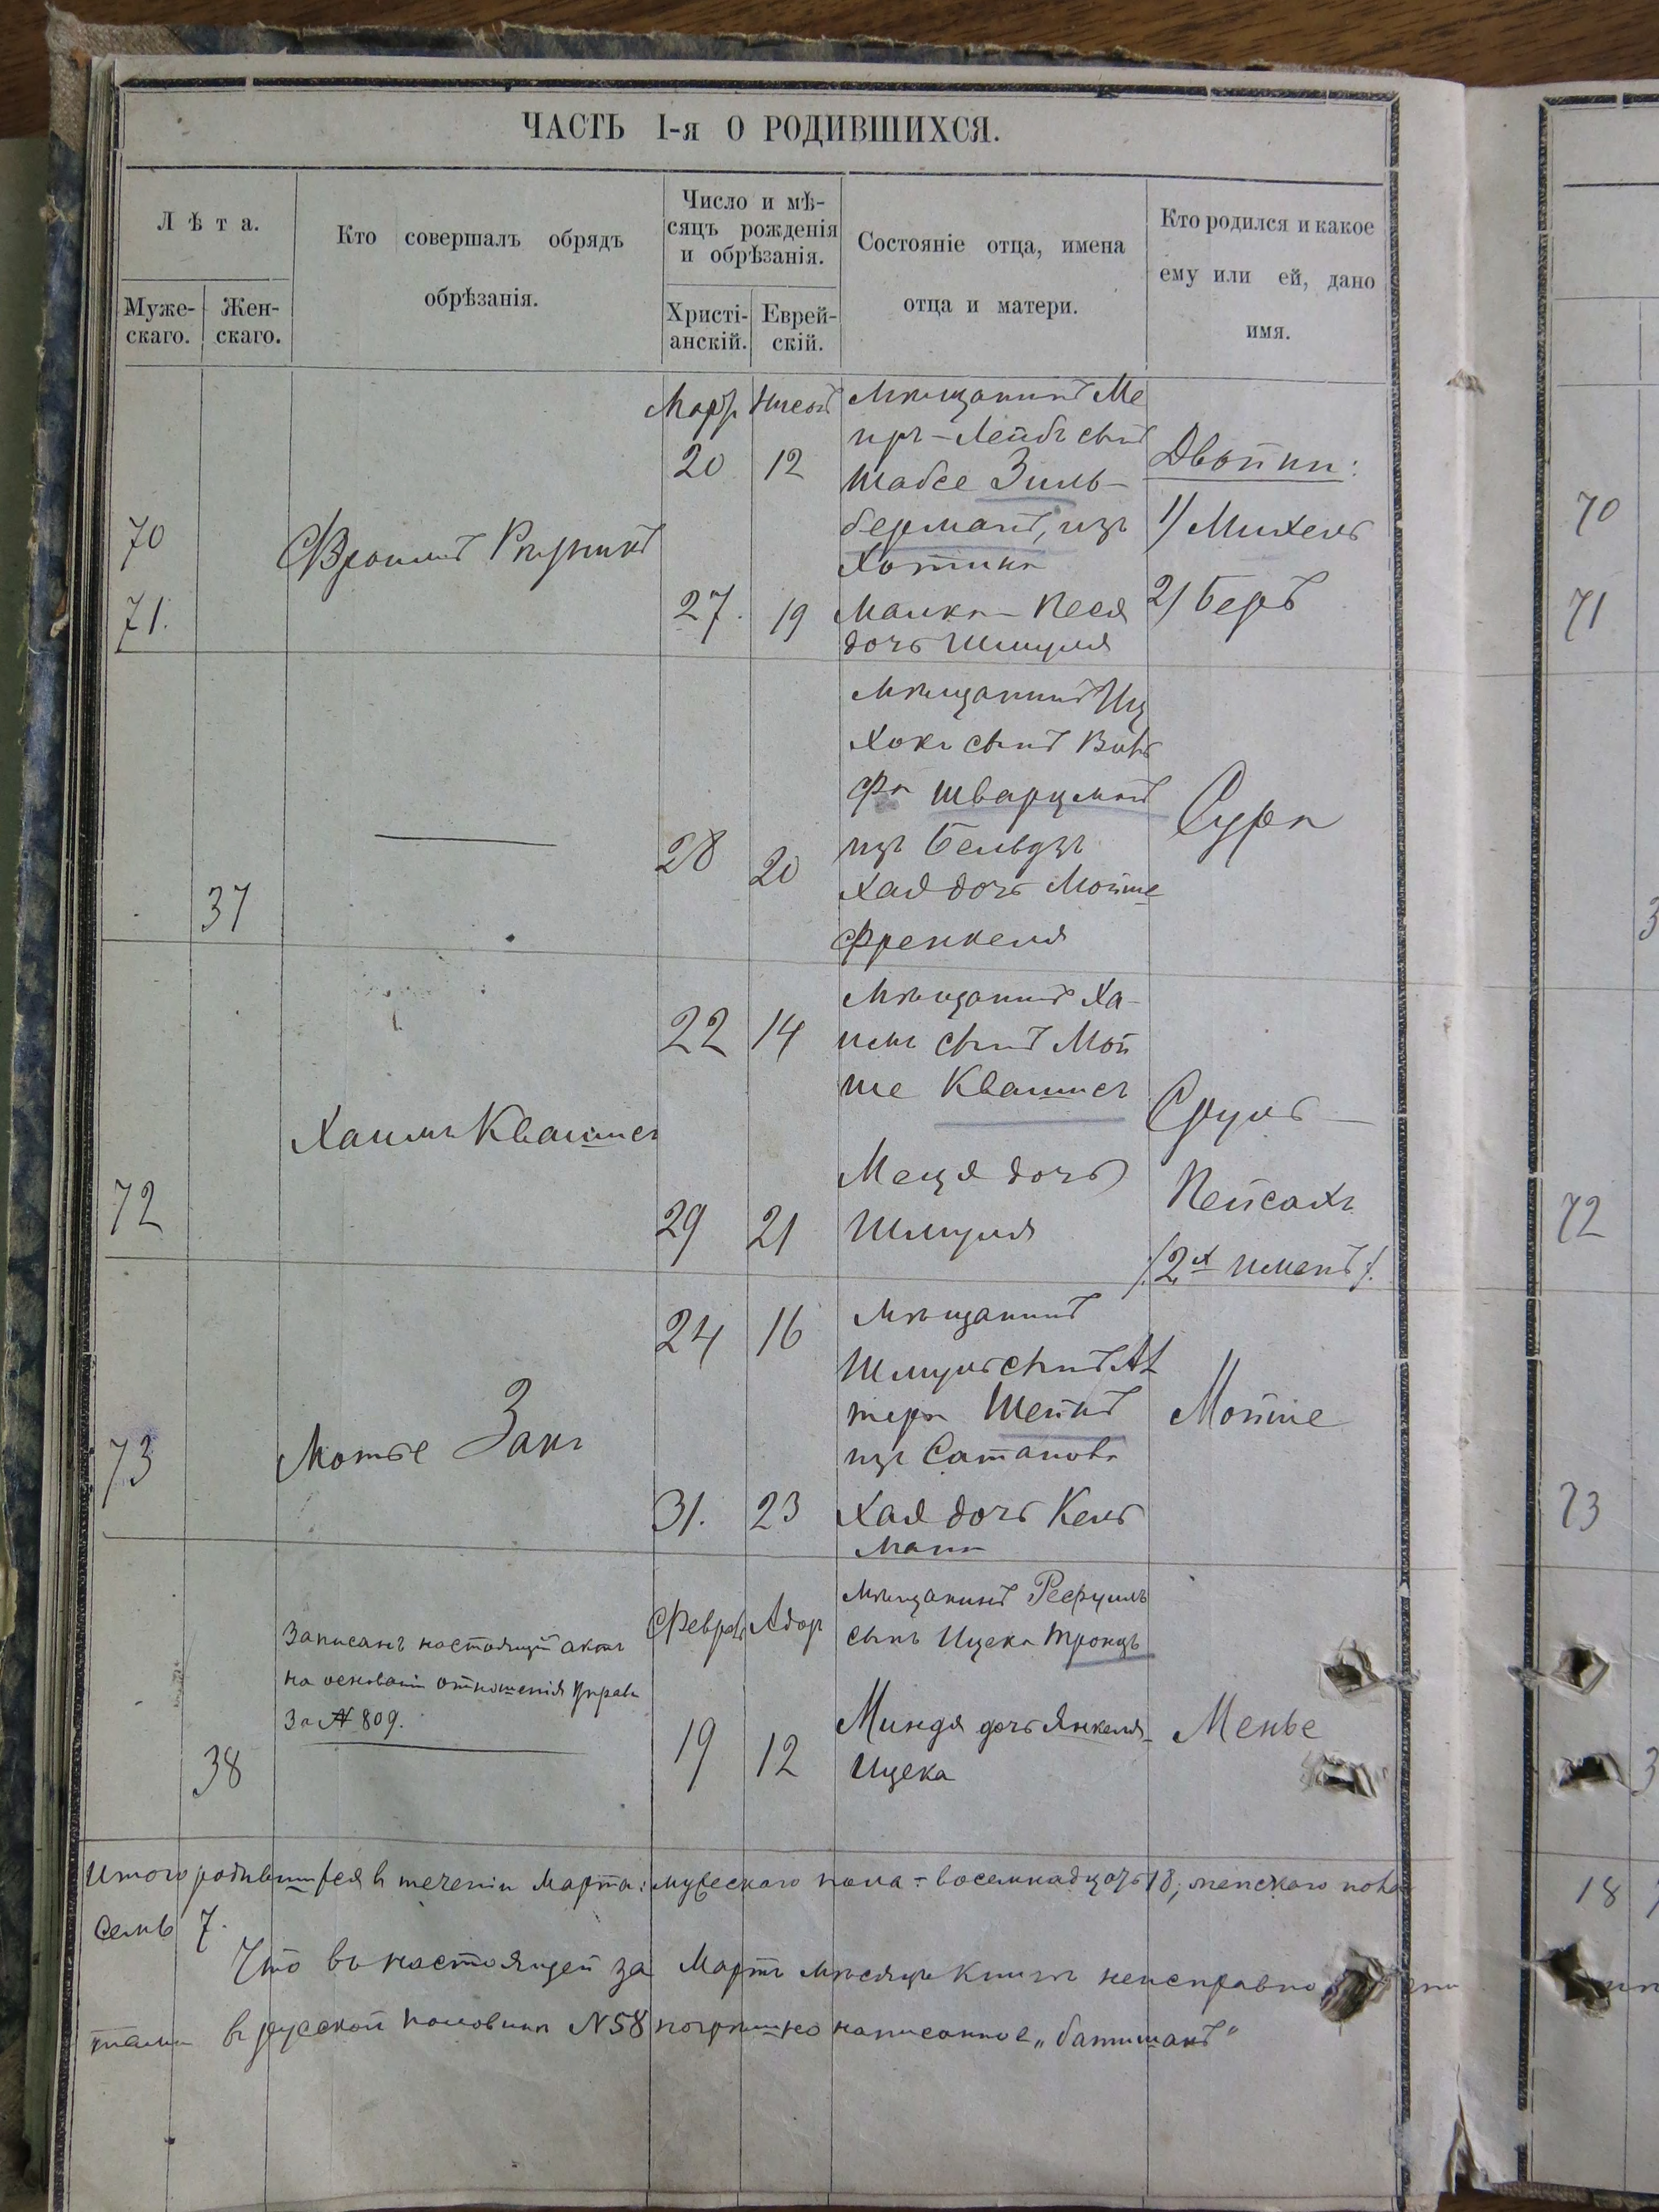 ЧАСТЬ I-я О РОДИВШИХСЯ.
Лѣта.
Муже-
скаго.
Жен-
скаго.
Кто совершалъ обрядъ
обрѣзанія.
Число и мѣ-
сяцъ рожденія
и обрѣзанія.
Христі-
анскій.
Еврей-
скій.
Состояніе отца, имена
отца и матери.
Кто родился и какое
ему или ей, дано
имя.
70
71.
Март.
20
27.
12
19
Мѣщанинъ Ме
иръ-Лейбъ сынъ
Шабсе Зиль-
берманъ, изъ
Хотина
Малка-Песя
дочь Шмуля
Двойни:
1) Михель
2) Беръ
70
71
37
28
20
Мѣщанинъ Иц
хокъ сынъ Воль
фа Шварцманъ
изъ Бельцъ
Хая дочь Мойше
Френкеля
Сура
3
72
Хаимъ Квашисъ
22
29
14
21
Мѣщанинъ Ха-
имъ сынъ Мой
ше Квашисъ
дочь
Шмуля
Сруль-
Пейсахъ
/2х именъ/.
72
73
Мотье Закъ
24
31.
16
23
Мѣщанинъ
Шмуль сынъ Аль
тера Шейнъ
изъ Сатанова
Хая дочь Кель
мана
Мойше
73
38
Записанъ настоящій актъ
на основаніи отношенія Управы
За № 809.
Февраль
19
Адар
12
Мѣщанинъ Рефуилъ
сынъ Ицека Тронцъ
Миндя дочь Янкеля-
Ицека
Менье
3
Итого родившихся въ теченіи Марта: мужескаго пола - восемнадцать 18, женскаго пола
семь 7.
18
Что въ настоящей за Мартъ мѣсяцъ Книгѣ неисправно
въ русской половинѣ №58 погрѣшно написанное „батшанъ“